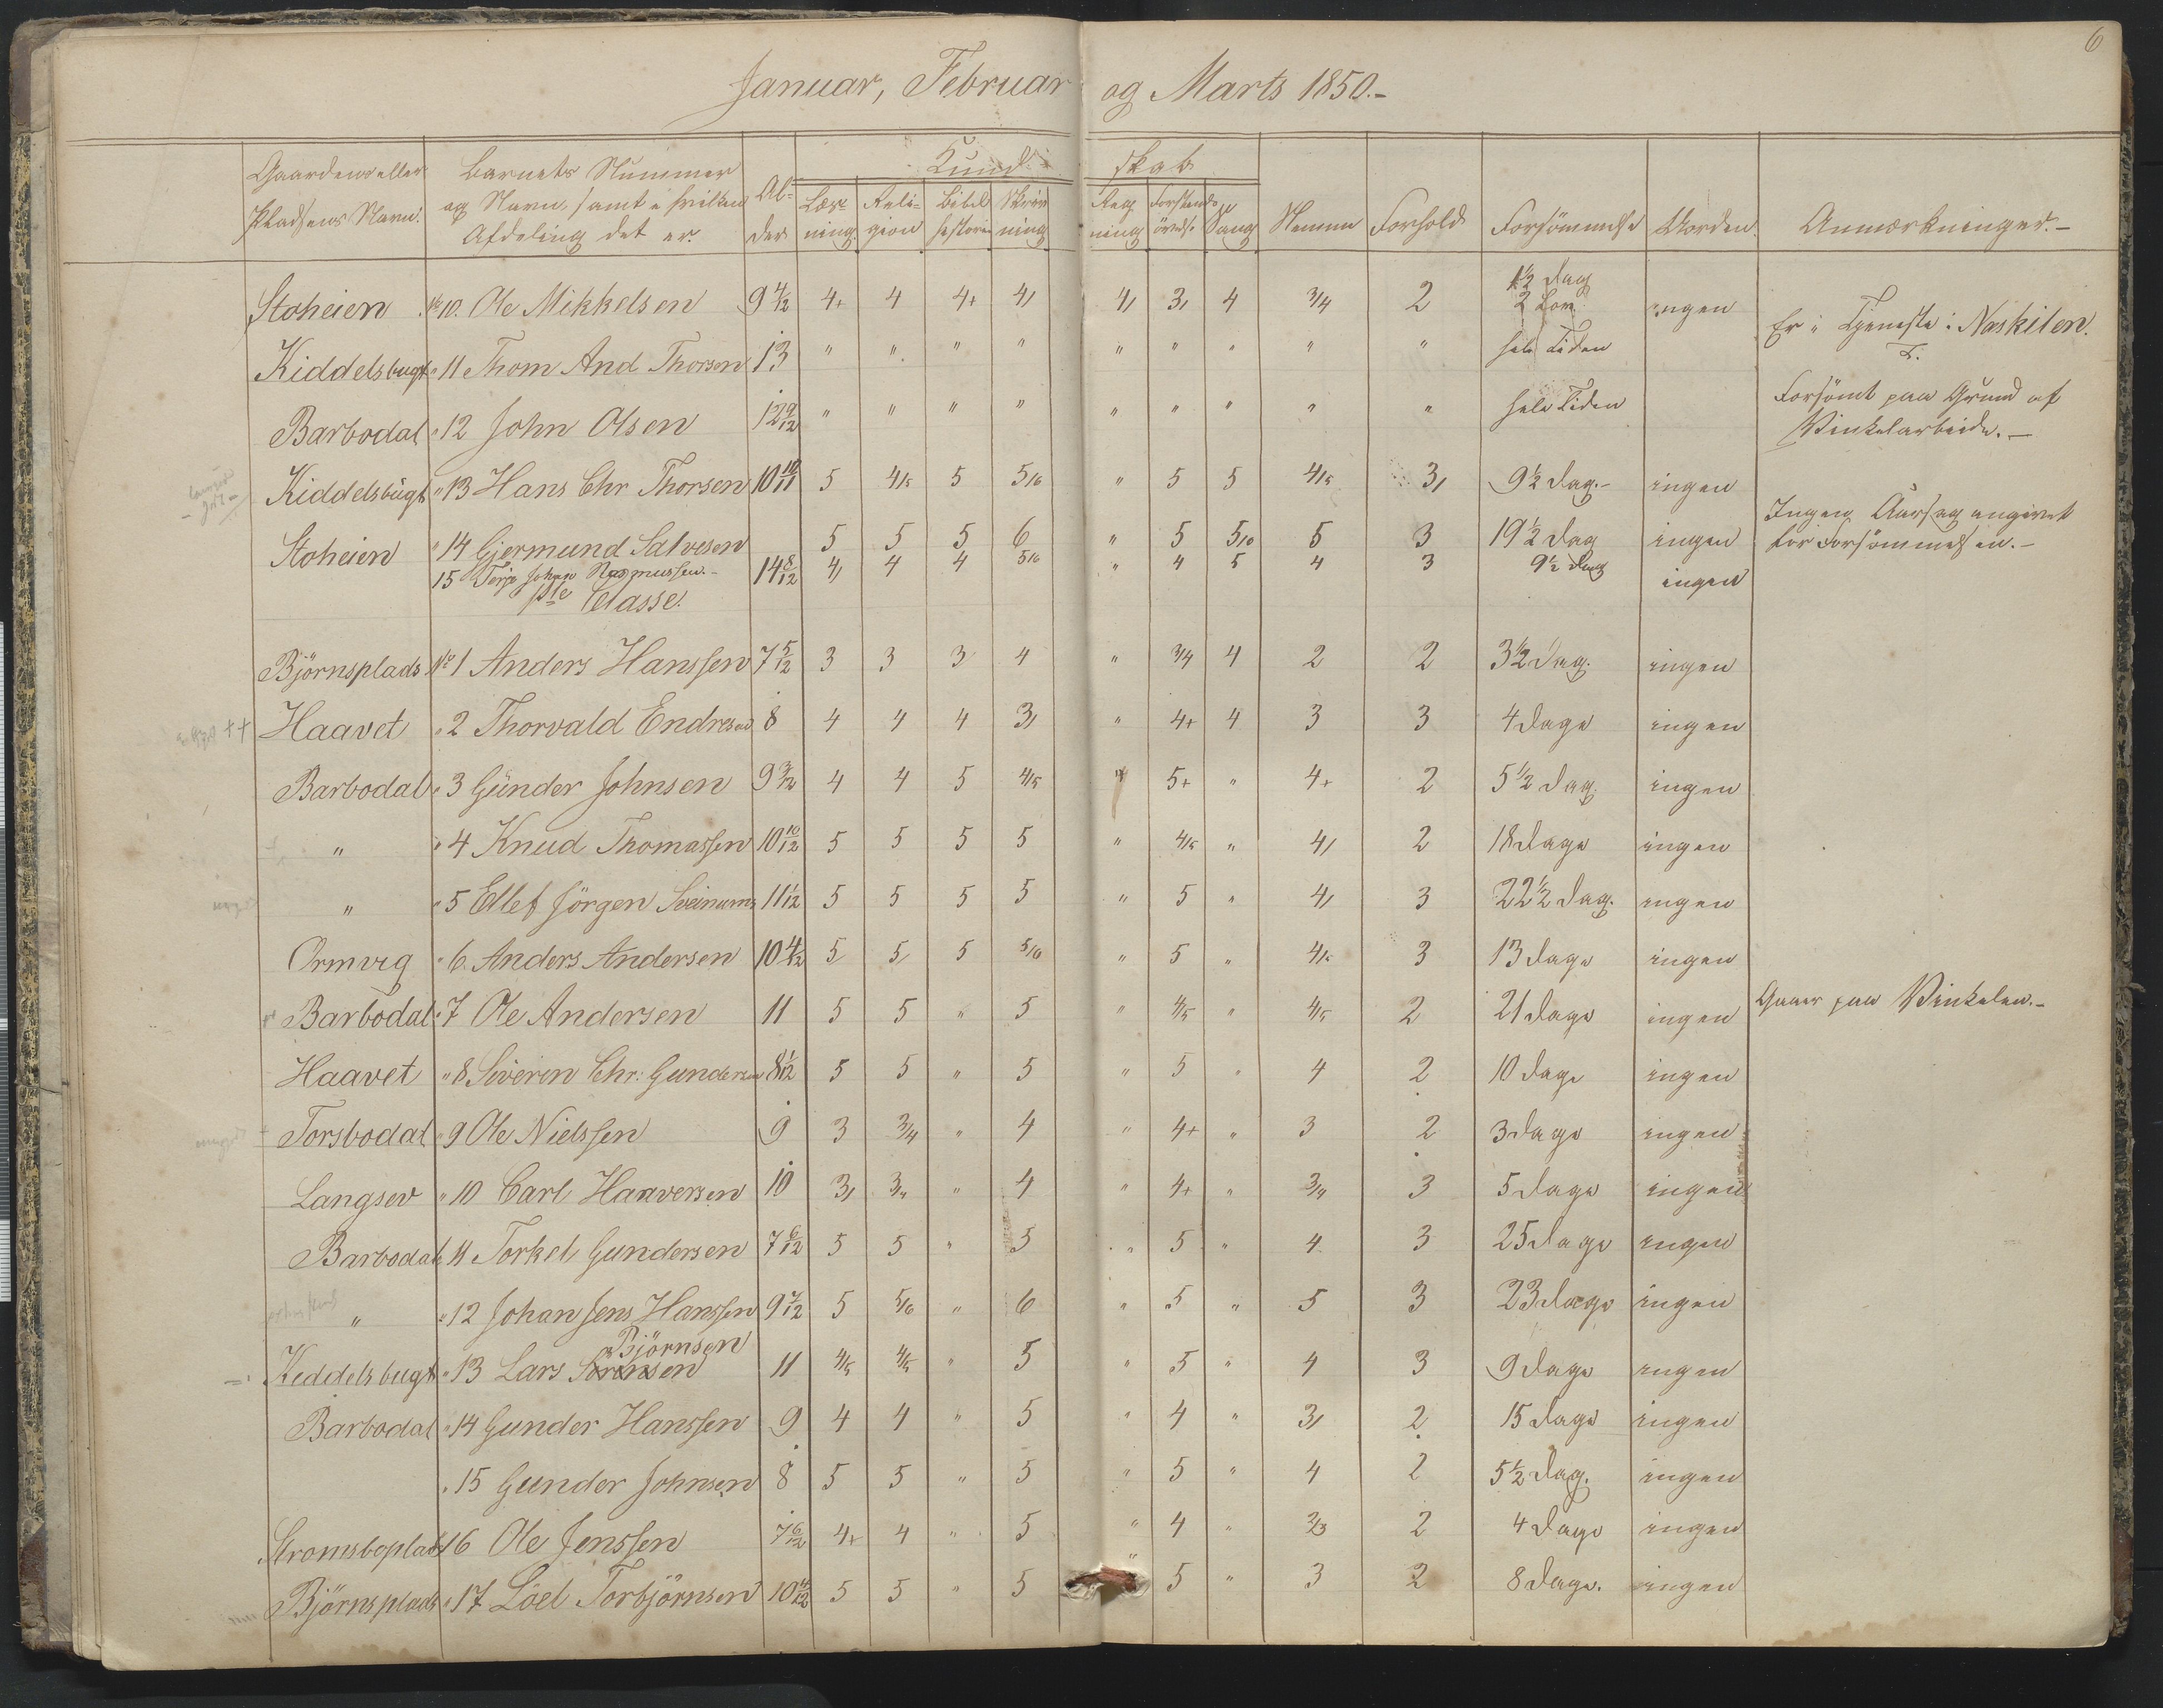 6
Januar, Februar og Marts 1850.-
Gaardens eller Pladsens Navn. | Barnets Nummer og Navn, samt i hvilken Afdeling det er. | Al-der | Kund-skab | Læs-ning. | Reli-gion | Bibel historie | Skriv ning | Reg ning | Forstands övelse | Sang | Nemme | Forhold | Forsömmelse | Uorden. | Anmærkninger.-
Stoheien No 10. Ole Mikkelsen 9 4/12 4+ 4 4+ 4/ 4/ 3/ 4 3/4 2 1½ Dag 2 ingen
Kiddelsbugt " 11 Thom And Thorsen 13 " " " " " " " " " hele Tiden Er i Tjeneste i Naskilen.
Barbodal " 12 John Olsen 12 9/12 " " " " " " " " " hele Tiden Forsömt paa Grund af Vinkelarbeide.-
Kiddelsbugt " 13 Hans Chr Thorsen 10 10/11 5 4/5 5 5/6 " 5 5 4/5 3/ 9½ Dag.- ingen
Stoheien " 14 Gjermund Salvesen 5 5 5 6 " 5 5/6 5 3 19½ Dag ingen Ingen Aarsag angivet for Forsömmelsen.-
15 Terje Johan Rasmussen.- 14 8/12 4/ 4 4 5/6 " 4 5 4 3 9½ Dag ingen
1ste Classe.
Björnsplads No 1 Anders Hanssen 7 5/12 3 3 3 4 " 3/4 4 2 2 3½ Dag. ingen
Haavet " 2 Thorvald Endresen 8 4 4 4 3/ " 4+ 4 3 3 4 Dage ingen
Barbodal " 3 Günder Johnsen 9 3/12 4 4 5 4/5 " 5+ " 4+ 2 5½ Dag. ingen
" " 4 Knud Thomassen 10 10/12 5 5 5 5 " 4/5 " 4/ 2 18 Dage ingen
" " 5 Ellef Jörgen Sveinums 11 1/12 5 5 5 5 " 5 " 4/ 3 22½ Dag. ingen
Ormvig " 6. Anders Andersen 10 4/12 5 5 5 5/6 " 5 " 4/5 3 13 Dage ingen
Barbodal " 7 Ole Andersen 11 5 5 " 5 " 4/5 " 4/5 2 21 Dage ingen Gaaer paa Vinkelen.-
Haavet " 8 Severin Chr: Gundersen 8 1/12 5 5 " 5 " 5 " 4 2 10 Dage ingen
Torsbodal " 9 Ole Nielssen 9 3 3/4 " 4 " 4+ " 3 2 3 Dage ingen
Langsev " 10 Carl Haaversen 10 3/ 3/4 " 4 " 4+ " 3/4 3 5 Dage ingen
Barbodal " 11 Torkel Gundersen 7 6/12 5 5 " 5 " 5 " 4 3 25 Dage ingen
" " 12 Johan Jens Hanssen 9 7/12 5 5/6 " 6 " 5 " 5 3 23 Dage ingen
Björnsen
Keddelsbugt " 13 Lars Sörensen 11 4/5 4/5 " 5 " 5 " 4 3 9 Dage ingen
Barbodal " 14 Gunder Hanssen 9 4 4 " 5 " 4 " 3/ 2 15 Dage ingen
" 15 Gunder Johnsen 8 5 5 " 5 " 5 " 4 2 5½ Dag. ingen
Stromsboplads 16 Ole Jenssen 7 6/12 4+ 4 " 5 " 4 " 2/3 2 4 Dage ingen
Björnsplads " 17 Loel Torbjörnsen 10 4/12 5 5 " 5 " 5 " 3 2 8 Dage. ingen